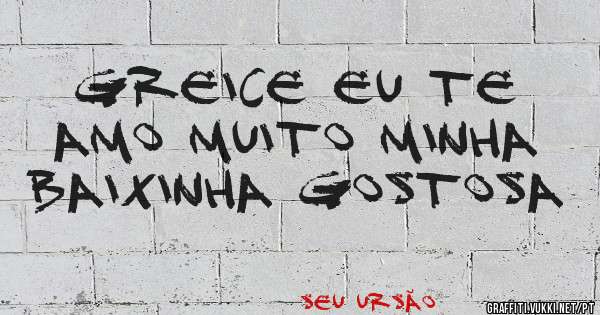 GREICE EU TE
AMO MUITO MINHA
BAIXINHA GOSTOSA
SEU URSÃO
GRAFFITI.VUKKI.NET/PT